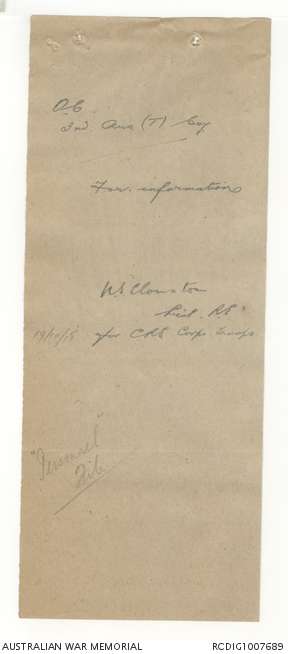 O.C.
3rd. Aus (T) Coy
For information
W. Clouston
Lieut. R.E.
19/10/15 for CRE Corps Troops
"Personnel"
File
AUSTRALIAN WAR MEMORIAL
RCDIG1007689